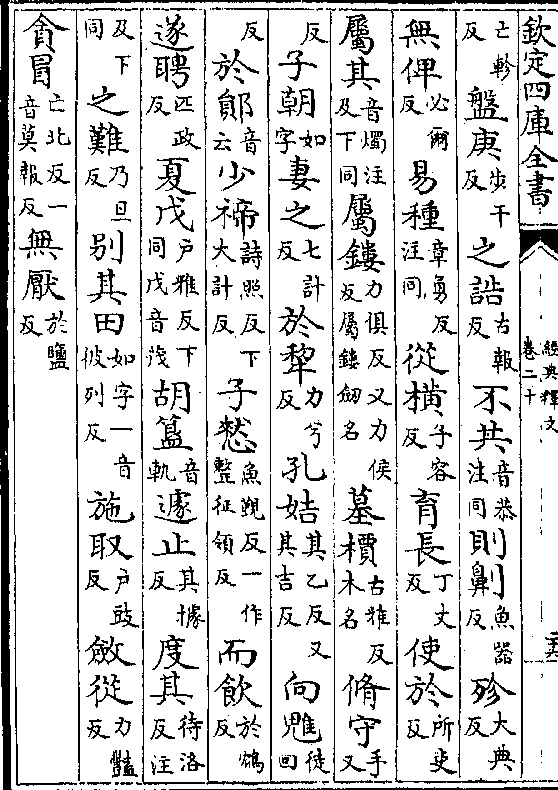 欽定四庫全書
經典釋文
卷二十
二十六
亡軫反盤庚步干反之誥古報反不共音恭注同則劓魚器反殄大典反
無俾必爾反易種章勇反注同從橫子容反育長丁丈反使於所吏反
屬其音燭注及下同屬鏤力俱反又力侯反屬鏤劒名墓檟古雅反木名脩守手又
反子朝如字妻之七計反於犂力兮反孔姞其乙反又其吉反向魋徒回
反於鄖音云少禘詩照反下大計反子憖魚覲反一作整征領反而飲於鴆反
遂聘匹政反夏戊戶雅反下同戊音茂胡簋音軌遽止其據反度其待洛反注
及下同之難乃旦反別其田如字一音彼列反施取戶豉反斂從力豔反
貪冒亡北反一音莫報反無厭於鹽反